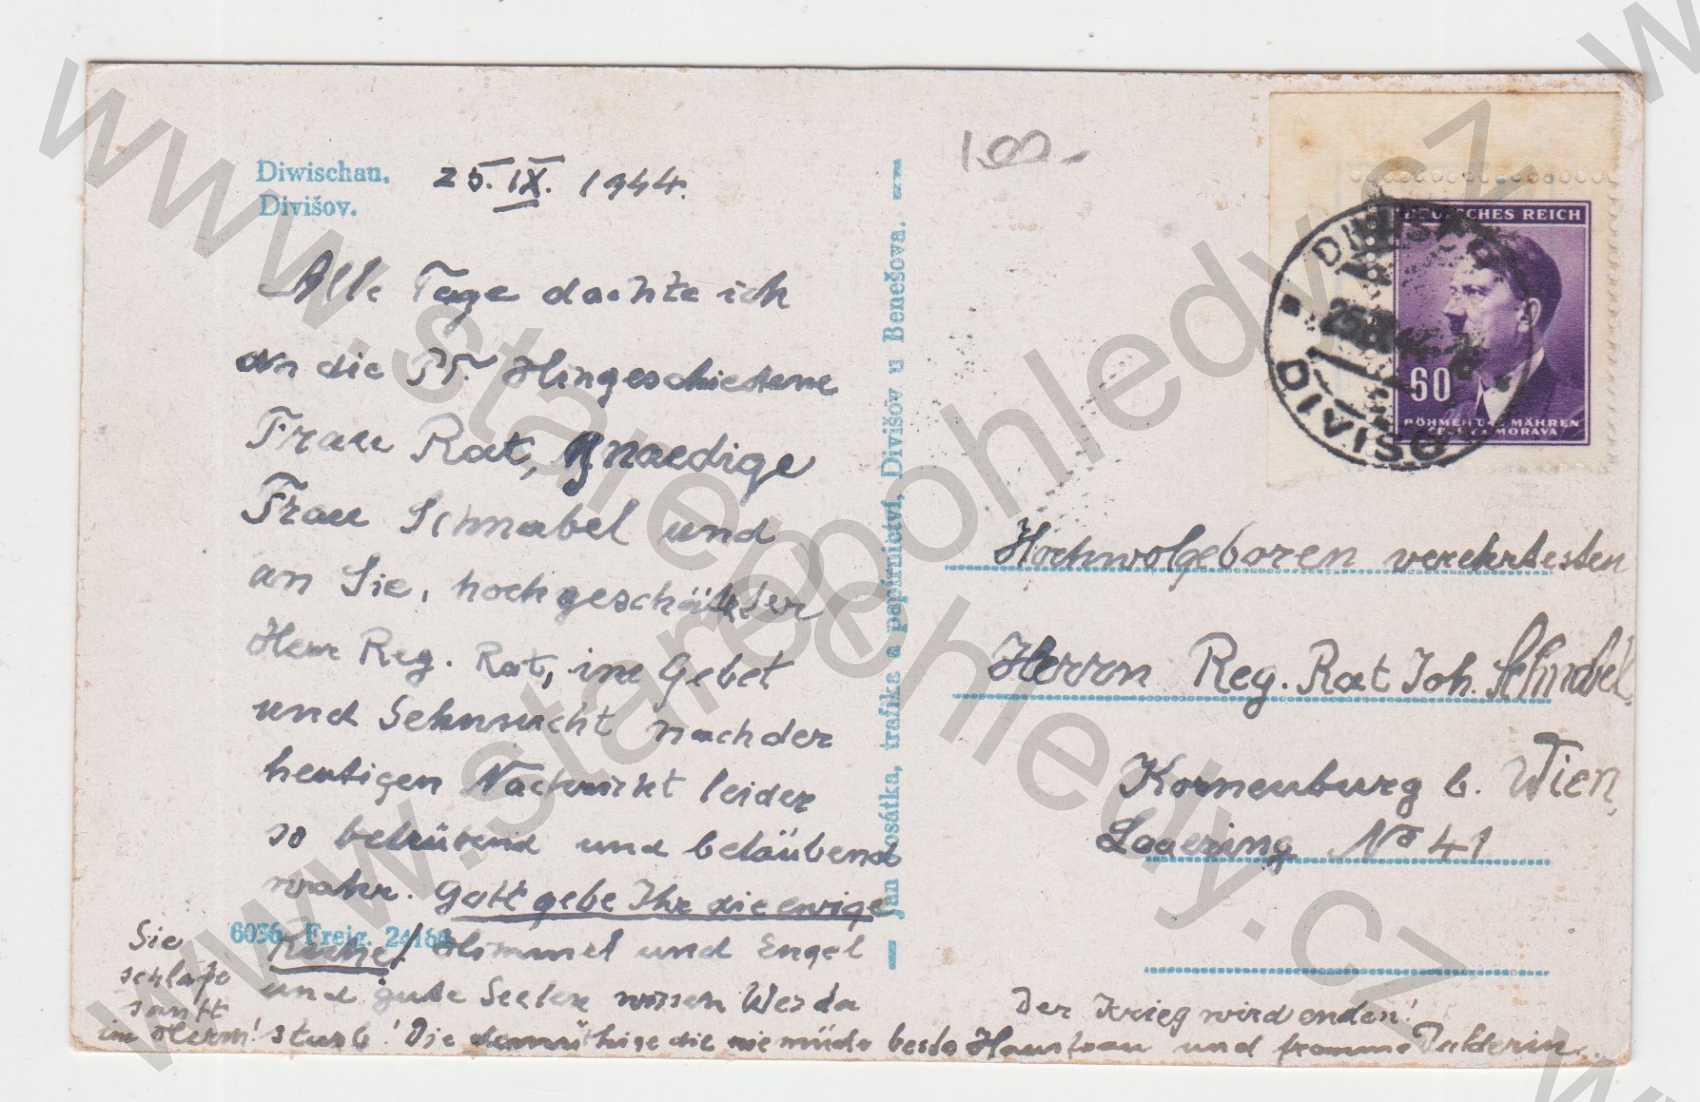 Diwischau. 25. IX. 1944.
Divišov.
Alle Tage dachte ich
an die Pf. Hingeschiedene
Frau Rat, Gnaedige
Frau Schnabel und
an Sie, hochgeschätzter
Herr Reg. Rat, im Gebet
und Sehnsucht nach der
heutigen Nachricht leider
so betrübend und betäubend
wahr. Gott gebe Ihr die ewige
Ruhe! Himmel und Engel
und gute Seelen wissen Wer da
Sie
schlafe
sanft
im Herrn! starb! Die demüthige die nie müde beste Hausfrau und fromme Dulderin.
6036 Freig. 24164
Jan Posátka, trafika a papírnictví, Divišov u Benešova.
1.00.-
DEUTSCHES REICH
60
BÖHMEN UND MÄHREN
ČECHY A MORAVA
DIVIŠOV
Hochwolgeboren verehrtesten
Herrn Reg. Rat Joh. Schnabel
Korneuburg b. Wien,
Laaerring No 41
Der Krieg wird enden!
www.starepohledy.cz
www.starepohledy.cz